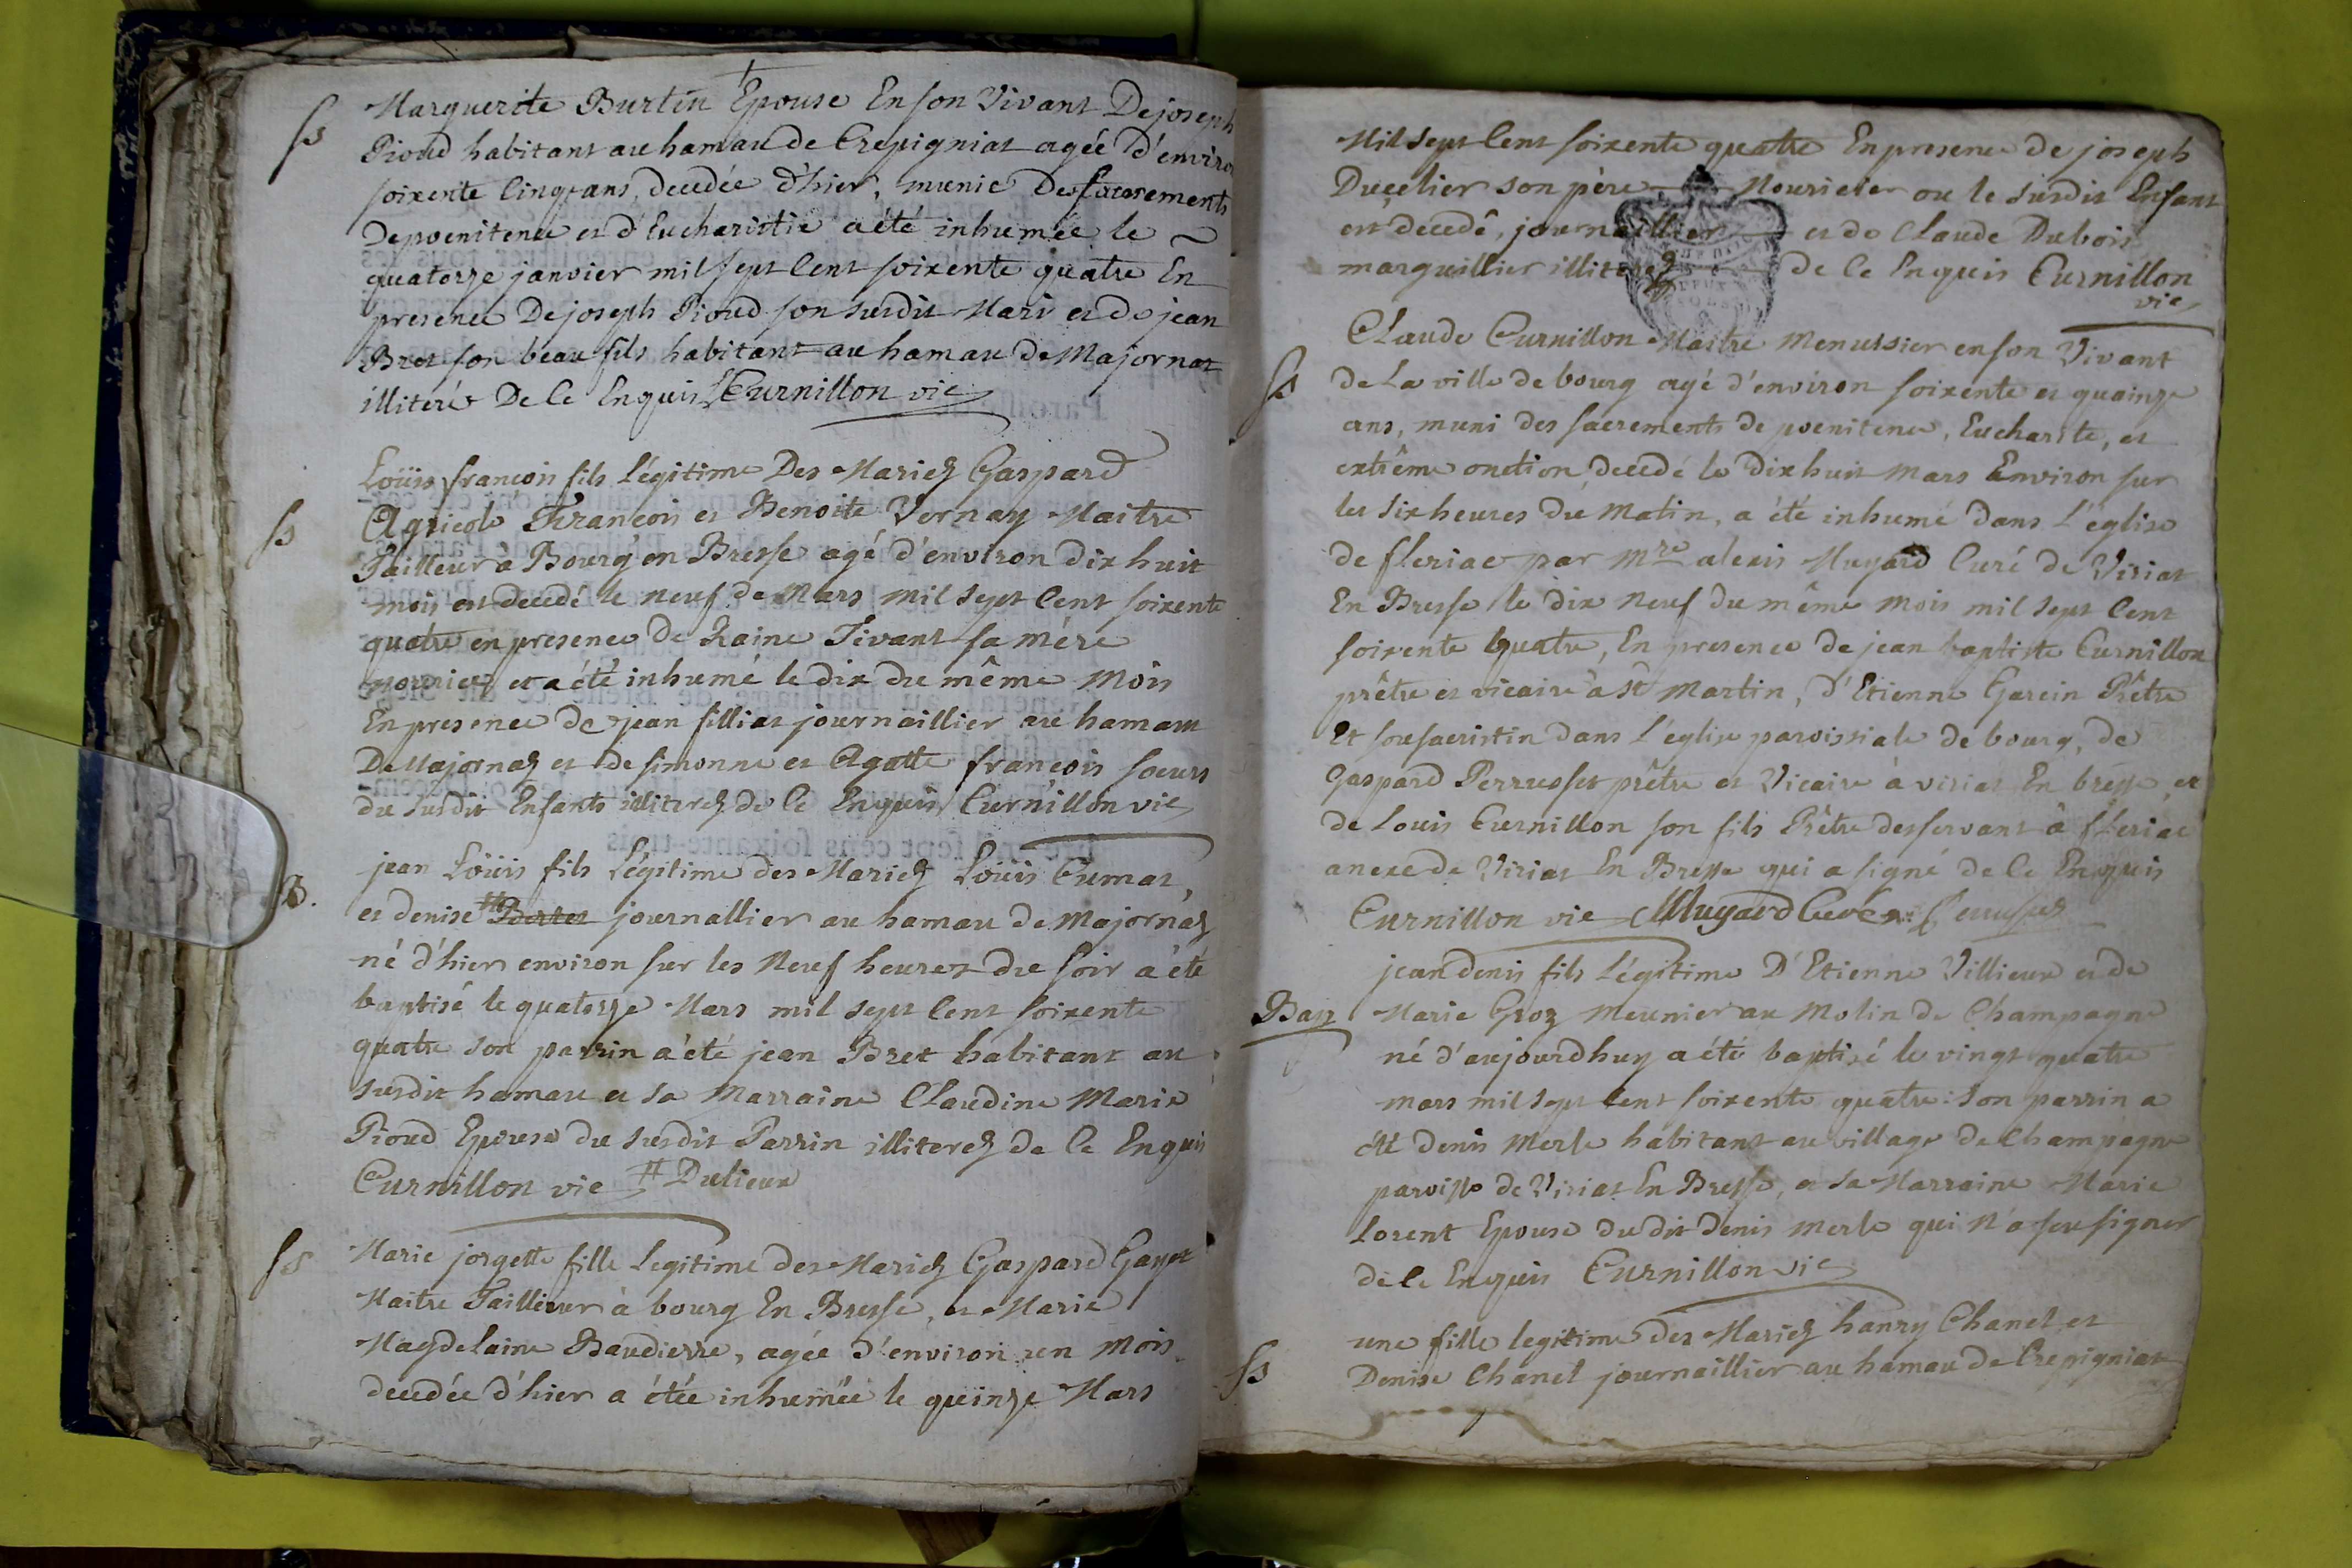 Marguerite Burtin Epouse En son Vivant De joseph
ss
Pioud habitant au hamau de Crepigniat agée d'environ
soixente Cinq ans, decedée d'hier, munie Des sacrements
De poenitence et d'Eucharistie a été inhumée le ~
quatorze janvier mil sept Cent soixente quatre En
presence De joseph Pioud son susdit Mari et de jean
Bret son beau fils habitant au hamau de Majornas
illiterés De Ce Enquis Curnillon vic
Loüis françois fils Légitime Des Mariez Gaspard
ss
Agricole François et Benoite Vernay Maitre
Tailleur a Bourg en Bresse agé d'environ dix huit
mois est decedé le neuf de Mars mil sept Cent soixente
quatre en presence De Raine Tivant sa mére
nourice, et a été inhumé le dix du même Mois
En presence de jean filliat journaillier au hamau
De Majornaz et de simonne et Agatte françois soeurs
du susdit Enfants illiterez de Ce Enquis Curnillon vic
jean Loüis fils Légitime des Mariez Loüis Cumat,
B.
et denise # Bertet journallier au hamau de Majornaz
né d'hier environ sur les Neuf heures du soir a été
baptisé le quatorze Mars mil sept Cent soixente
quatre son parrin a été jean Bret habitant au
susdit hamau et sa Marraine Claudine Marie
Pioud Epouse du susdit Parrin illiterez de Ce Enquis
Curnillon vic # Dulieux
ss
Marie jorgette fille Legitime des Mariez Gaspard Gayet
Maitre Tailleur à bourg En Bresse, et Marie
Magdelaine Baudierre, agée d'environ un Mois
decedée d'hier a étée inhumée le quinze Mars
Mil sept Cent soixente quatre En presence de joseph
Duçelier son père Nouricier ou le susdit Enfant
est decedé, journaillier et de Claude Dubois
marguillier illiterez de Ce Enquis Curnillon
vic
Claude Curnillon Maitre Menussier en son Vivant
ss
de La ville de bourg agé d'environ soixente et quainze
ans, muni des sacrements de poenitence, Eucharste, et
extrême onction, decedé le dix huit Mars Environ sur
les six heures du Matin, a été inhumé dans L'église
de fleriac par Mre alexis Mugard Curé de Viriat
En Bresse le dix neuf du même Mois mil sept Cent
soixente quatre, En presence de jean baptiste Curnillon
prêtre et vicaire a st Martin, d'Etienne Garcin Prêtre
Et sousacristin dans L'église paroissiale de bourg, de
Gaspard Perrusset prêtre et Vicaire à viriat En bresse, et
de Louis Curnillon son fils Prêtre desservant à fleriac
anexe de Viriat En Bresse qui a signé de Ce Enquis
Curnillon vic Mugard Curé
jean denis fils Légitime D'Etienne Villieux et de
Bap
Marie Groz Meunier au Molin de Champagne
né d'aujourdhuy a été baptisé le vingt quatre
mars mil sept Cent soixente quatre: son parrin a
été denis Merle habitant au village de Champagne
paroisse de Viriat En Bresse, et sa Marraine Marie
Lorent Epouse du dit denis Merle qui N'a seu signer
de Ce Enquis Curnillon vic
une fille legitime des Mariez hanry Chanel et
ss
Denise Chanel journaillier au hamau de Crepigniat